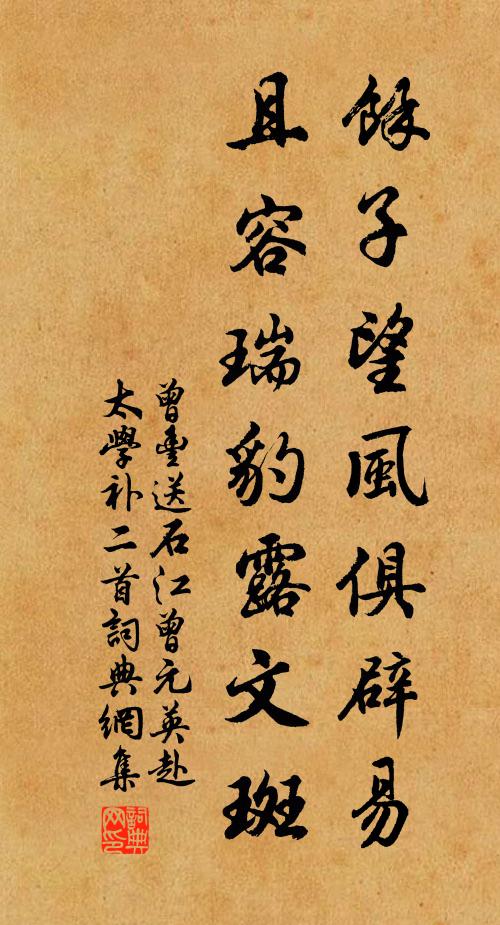 餘子望風俱辟易
且容瑞豹露文斑
曾豊送石江曾元英赴
太學补二首詞典網集
詞典網印